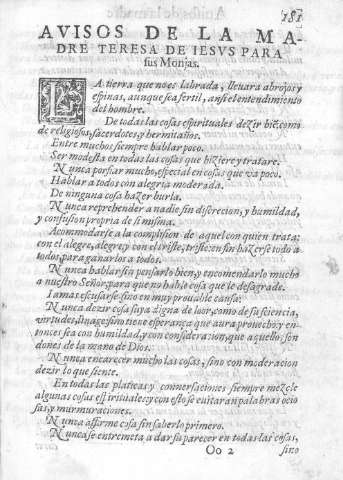 181
AVISOS DE LA MA-
DRE TERESA DE IESVS PARA
sus Monjas.
LA tierra que no es labrada, lleuara abrojos y
espinas, aunque sea fertil, ansi el entendimiento
del hombre.
De todas las cosas espirituales dezir biẽ, como
de religiosos, sacerdotes, y hermitaños.
Entre muchos siempre hablar poco.
Ser modesta en todas las cosas que hiziere y tratare.
Nunca porfiar mucho, especial en cosas que va poco.
Hablar a todos con alegria moderada.
De ninguna cosa hazer burla.
Nunca reprehender a nadie sin discrecion, y humildad,
y confusion propria de si misma.
Acommodarse a la complision de aquel con quien trata:
con el alegre, alegre, y con el triste, triste: en fin hazerse todo a
todos, para ganarlos a todos.
Nunca hablar sin pensarlo bien, y encomendarlo mucho
a nuestro Señor, para que no hable cosa que le desagrade.
Iamas escusarse sino en muy prouable causa.
Nunca dezir cosa suya digna de loor, como de su sciencia,
virtudes, linage, sino tiene esperança que aura prouecho, y en-
tonces sea con humildad, y con consideracion, que aquello, son
dones de la mano de Dios.
Nunca encarecer mucho las cosas, sino con moderacion
dezir lo que siente.
En todas las platicas y conuersaciones siempre mezcle
algunas cosas espirituales: y con esto se euitaran palabras ocio
sas, y murmuraciones.
Nunca affirme cosa sin saberlo primero.
Nunca se entremeta a dar su parecer en todas las cosas,
Oo 2 sino